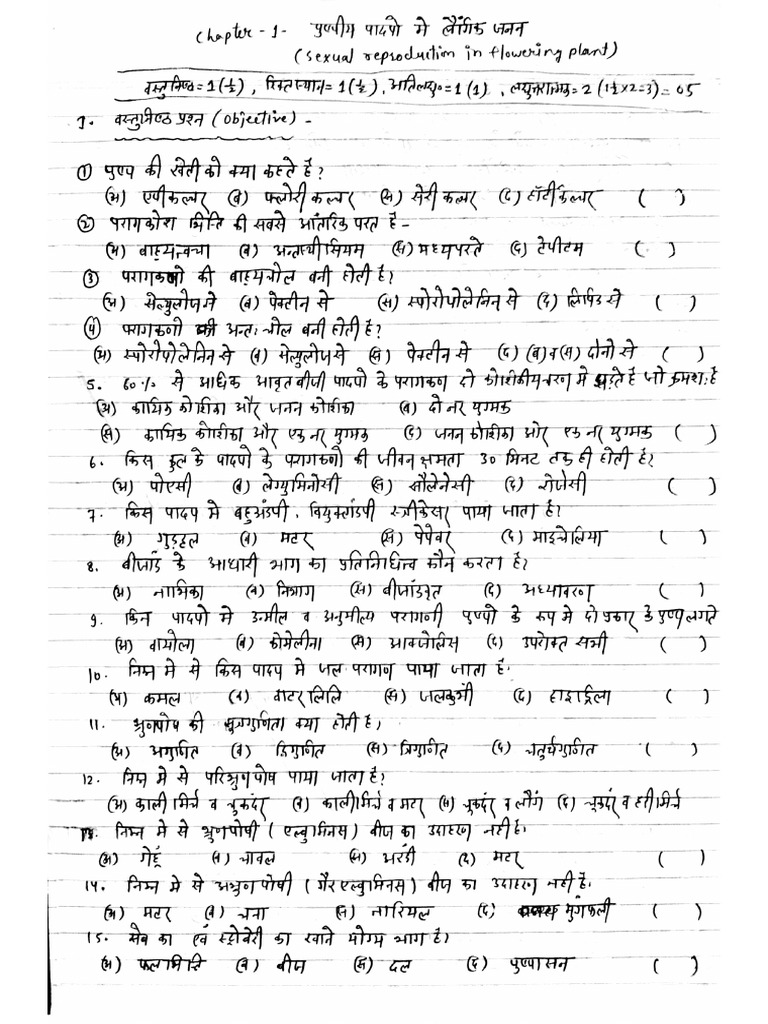 Chapter - 1 - पुष्पीय पादपो मे लैंगिक जनन
(sexual reproduction in flowering plant)
वस्तुनिष्ठ = 1 (½), रिक्तस्थान = 1 (½), अतिलघु० = 1 (1), लघुत्तरात्मक = 2 (1½×2=3) = 05
1. वस्तुनिष्ठ प्रश्न (objective) -
① पुष्प की खेती को क्या कहते है?
(अ) एपीकल्चर (ब) फ्लोरीकल्चर (स) सेरीकल्चर (द) हॉर्टीकल्चर ( )
② परागकोश भित्ति की सबसे आंतरिक परत है -
(अ) बाह्यत्वचा (ब) अन्तस्थीसियम (स) मध्यपरते (द) टेपीटम ( )
③ परागकणो की बाह्यचोल बनी होती है?
(अ) सेल्युलोज से (ब) पेक्टीन से (स) स्पोरोपोलेनिन से (द) लिपिड से ( )
④ परागकणो की अन्तः चोल बनी होती है?
(अ) स्पोरोपोलेनिन से (ब) सेल्युलोज से (स) पेक्टीन से (द) (ब) व (स) दोनो से ( )
5. 60% से अधिक आवृतबीजी पादपो के परागकण दो कोशिकीय चरण मे झड़ते है जो क्रमशः है
(अ) कायिक कोशिका और जनन कोशिका (ब) दो नर युग्मक
(स) कायिक कोशिका और एक नर युग्मक (द) जनन कोशिका ओर एक नर युग्मक ( )
6. किस कुल के पादपो के परागकणो की जीवन क्षमता 30 मिनट तक ही होती है?
(अ) पोएसी (ब) लेग्युमिनोसी (स) सौलेनेसी (द) रोजेसी ( )
7. किस पादप मे बहुअंडपी, वियुक्तांडपी स्त्रीकेसर पाया जाता है?
(अ) गुड़हल (ब) मटर (स) पेपेवर (द) माइचेलिया ( )
8. बीजांड के आधारी भाग का प्रतिनिधित्व कौन करता है?
(अ) नाभिका (ब) निभाग (स) बीजांडवृत (द) अध्यावरण ( )
9. किन पादपो मे उन्मील व अनुमील्य परागणी पुष्पो के रूप मे दो प्रकार के पुष्प लगते
(अ) वायोला (ब) कोमेलीना (स) आक्जेलिस (द) उपरोक्त सभी ( )
10. निम्न मे से किस पादप मे जल परागण पाया जाता है.
(अ) कमल (ब) वाटर लिलि (स) जलकुंभी (द) हाइड्रिला ( )
11. भ्रुणपोष की सुत्रगुणिता क्या होती है,
(अ) अगुणित (ब) द्विगुणित (स) त्रिगुणित (द) चतुर्थगुणित ( )
12. निम्न मे से परिभ्रुणपोष पाया जाता है?
(अ) काली मिर्च व चुकंदर (ब) काली मिर्च व मटर (स) चुकंदर व लौंग (द) चुकंदर व हरी मिर्च
13. निम्न मे से भ्रुणपोषी (एल्बुमिनस) बीज का उदाहरण नही है.
(अ) गेहूँ (ब) चावल (स) अरंडी (द) मटर ( )
14. निम्न मे से अभ्रुणपोषी (गैर एल्बुमिनस) बीज का उदाहरण नही है.
(अ) मटर (ब) चना (स) नारियल (द) मुंगफली ( )
15. सेब का एवं स्ट्रोबेरी का खाने योग्य भाग है.
(अ) फलभित्ति (ब) बीज (स) दल (द) पुष्पासन ( )